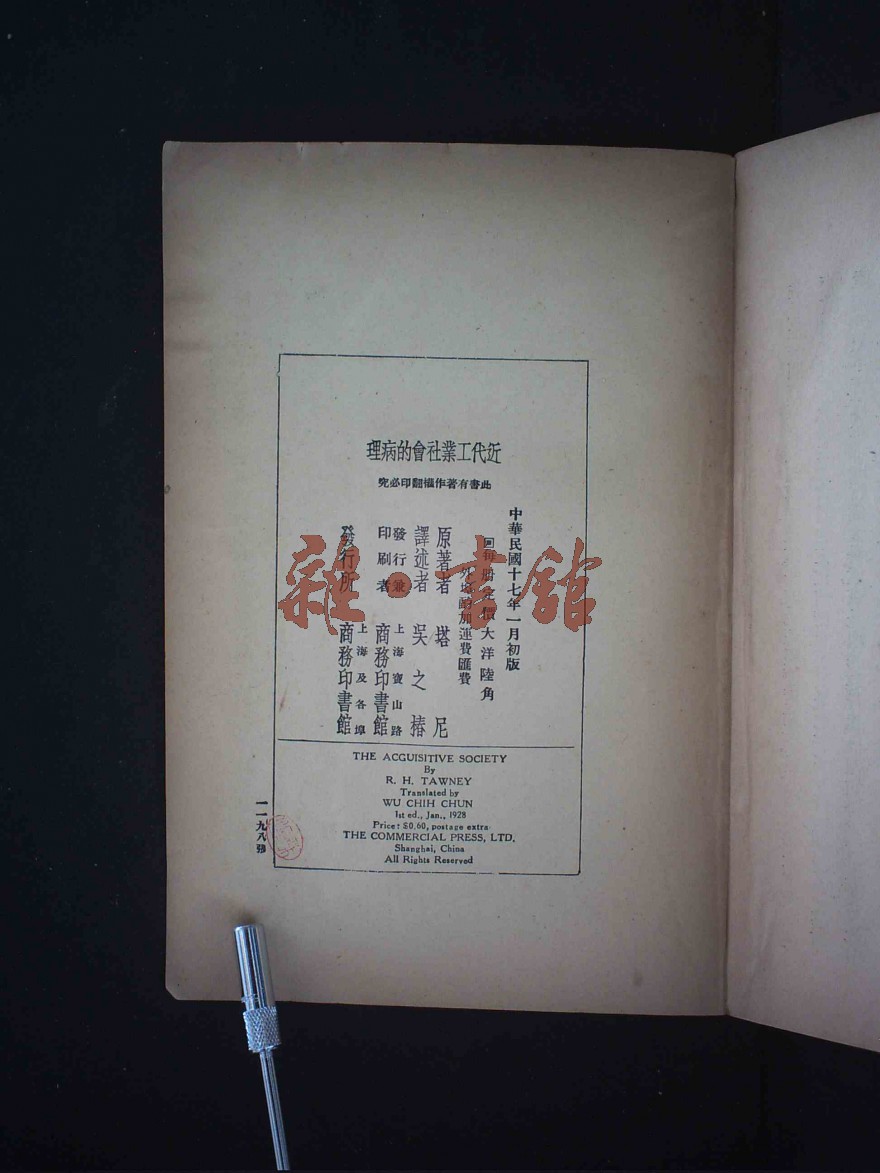 近代工業社會的病理
此書有著作權翻印必究
中華民國十七年一月初版
回每冊定價大洋陸角
外埠酌加運費匯費
原著者 塔尼
譯述者 吳之椿
發行兼印刷者 上海寶山路 商務印書館
發行所 上海及各埠 商務印書館
THE ACGUISITIVE SOCIETY
By
R. H. TAWNEY
Translated by
WU CHIH CHUN
1st ed., Jan., 1928
Price: $0.60, postage extra
THE COMMERCIAL PRESS, LTD.
Shanghai, China
All Rights Reserved
一一九八號
雜·書館